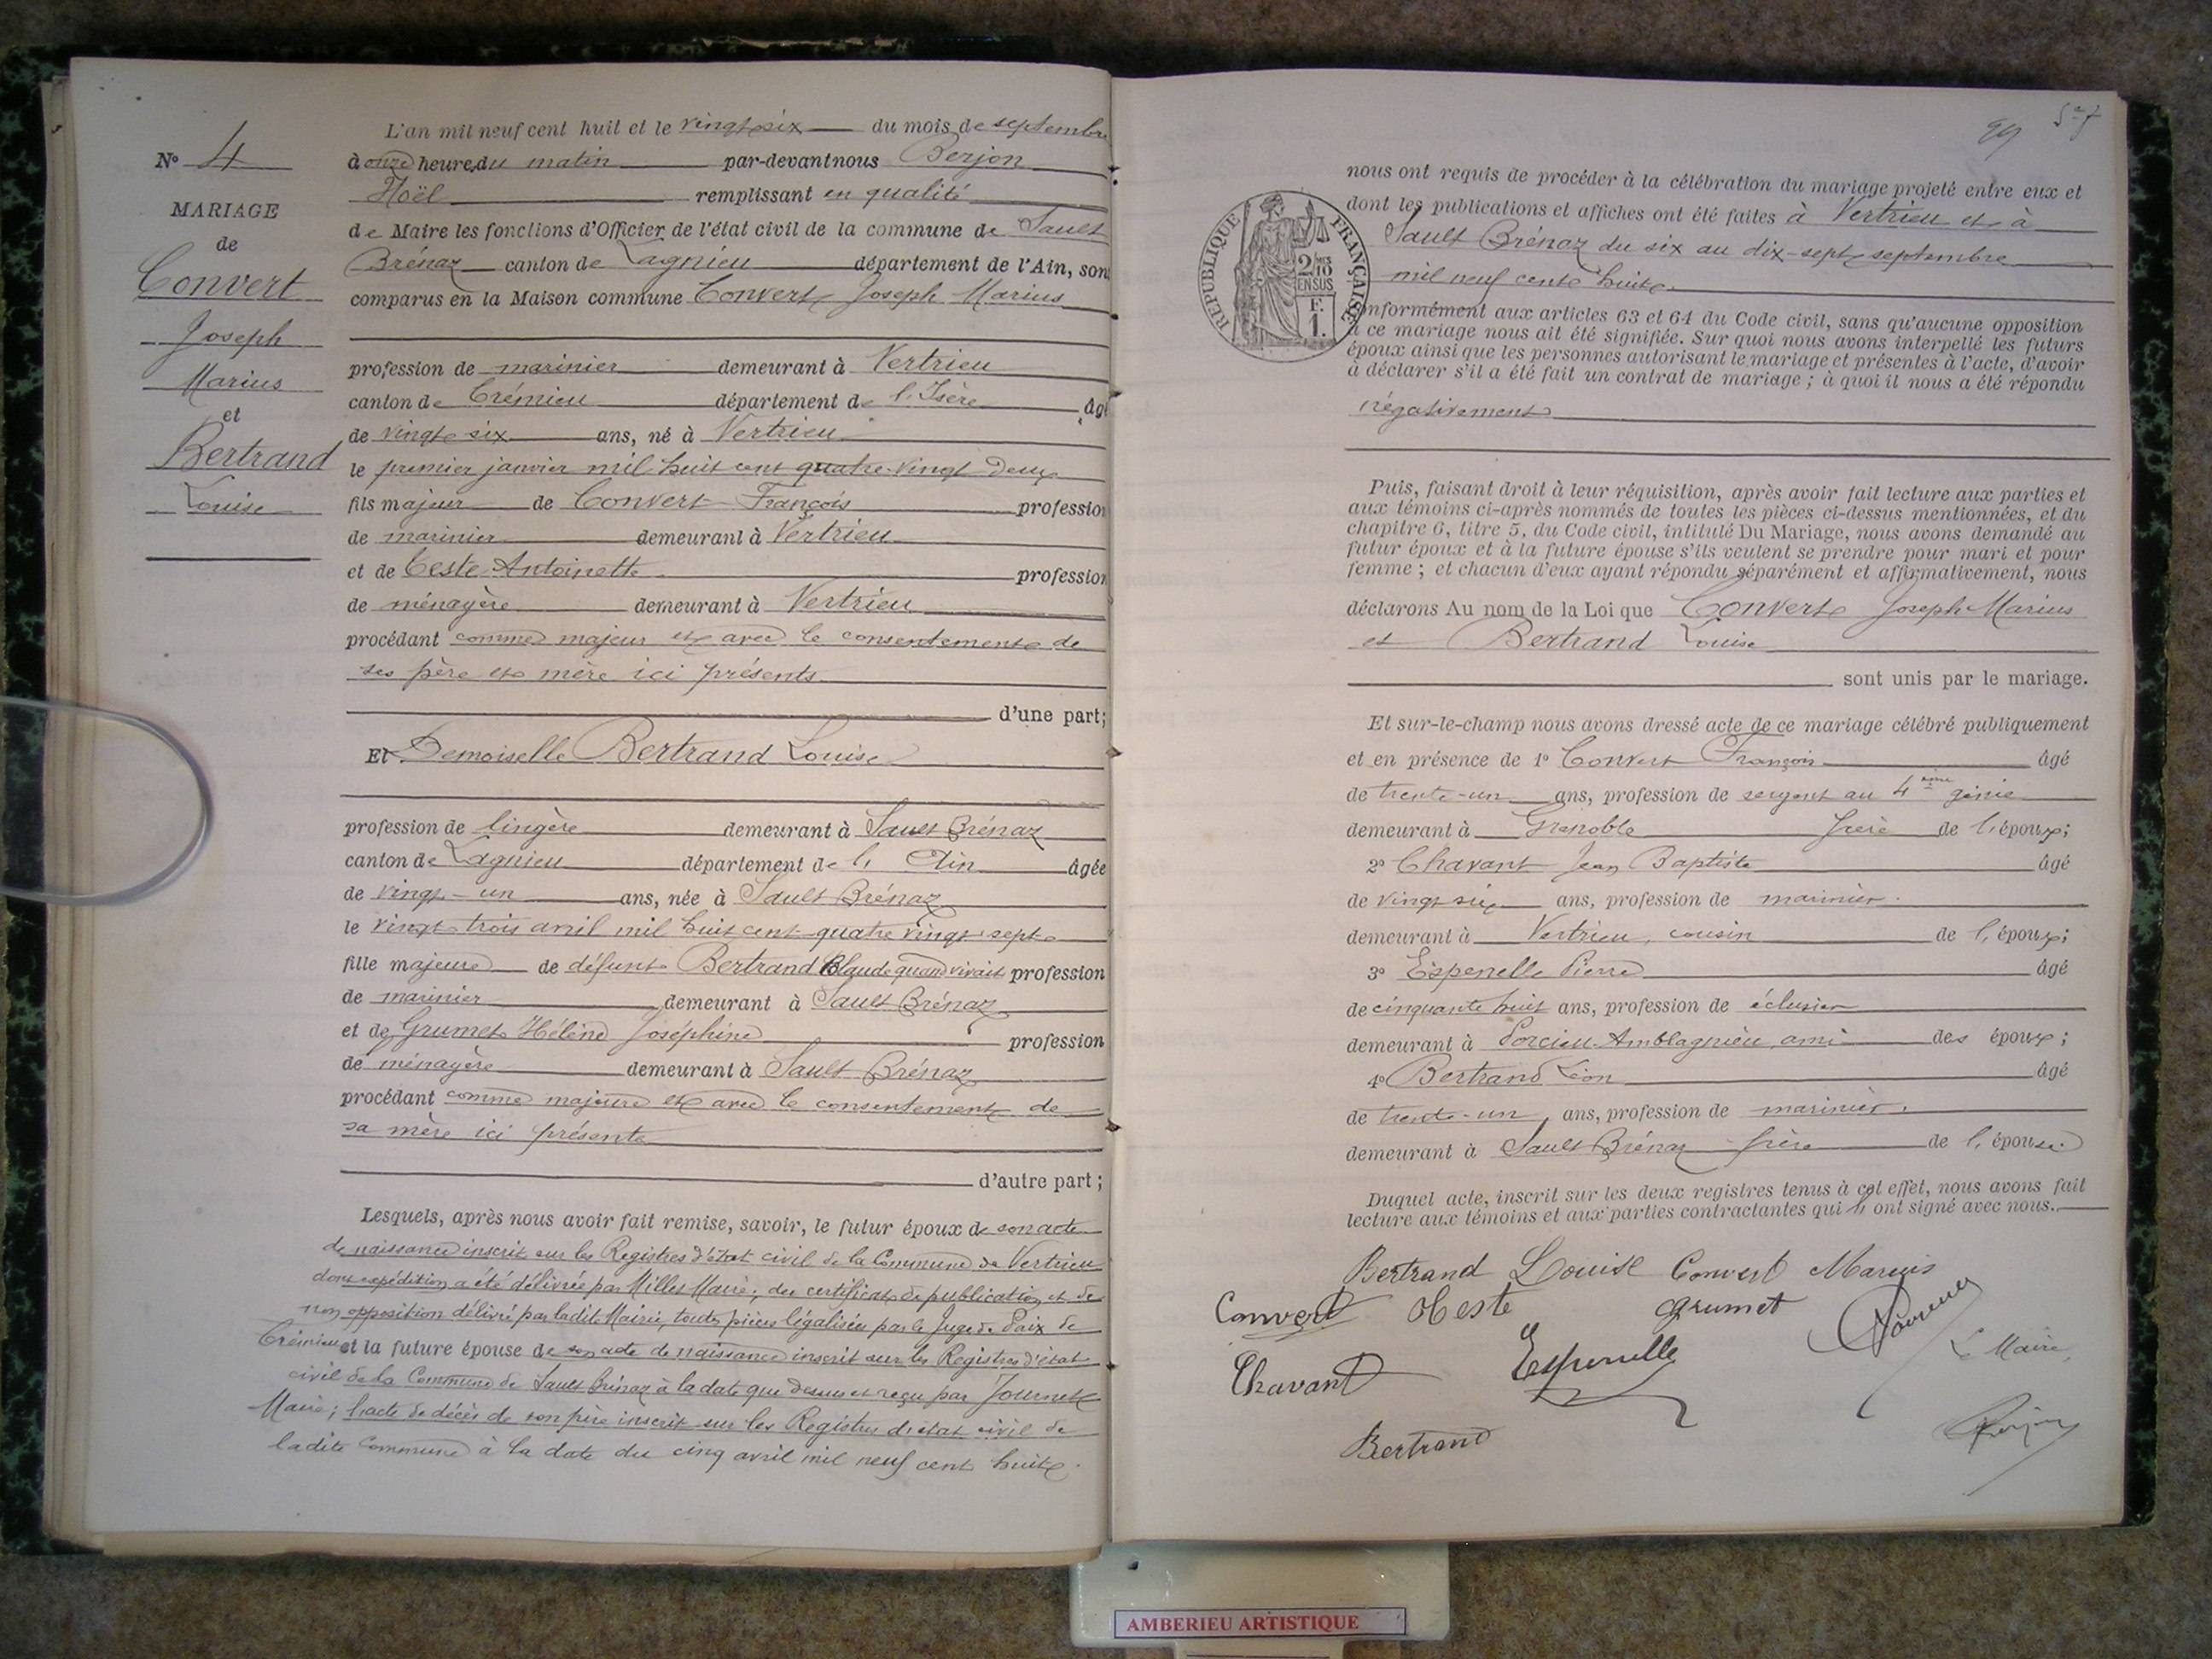 N° 4
MARIAGE
de
Convert
Joseph
Marius
et
Bertrand
Louise
L'an mil neuf cent huit et le vingt-six du mois de septembre
à onze heures du matin par-devant nous Berjon
Noël remplissant en qualité
de Maire les fonctions d'Officier de l'état civil de la commune de Sault
Brénaz canton de Lagnieu département de l'Ain, son
comparus en la Maison commune Convert Joseph Marius
profession de marinier demeurant à Vertrieu
canton de Crémieu département de l'Isère âgé
de vingt-six ans, né à Vertrieu
le premier janvier mil huit cent quatre-vingt deux
fils majeur de Convert François profession
de marinier demeurant à Vertrieu
et de Ceste Antoinette profession
de ménagère demeurant à Vertrieu
procédant comme majeur et avec le consentement de
ses père et mère ici présents
d'une part;
Et Demoiselle Bertrand Louise
profession de lingère demeurant à Sault Brénaz
canton de Lagnieu département de l'Ain âgée
de vingt-un ans, née à Sault Brénaz
le vingt-trois avril mil huit cent quatre vingt-sept
fille majeure de défunt Bertrand Claude quand vivait profession
de marinier demeurant à Sault Brénaz
et de Grumet Hélène Joséphine profession
de ménagère demeurant à Sault Brénaz
procédant comme majeure et avec le consentement de
sa mère ici présente
d'autre part;
Lesquels, après nous avoir fait remise, savoir, le futur époux de son acte
de naissance inscrit sur les Registres d'état civil de la Commune de Vertrieu
dont expédition a été délivrée par Milles Maire; du certificat de publication et de
non opposition délivré par ladite Mairie, toutes pièces légalisées par le Juge de Paix de
Crémieu et la future épouse de son acte de naissance inscrit sur les Registres d'état
civil de la Commune de Sault Brénaz à la date que dessus et reçu par Journet
Maire; l'acte de décès de son père inscrit sur les Registres d'état civil de
ladite Commune à la date du cinq avril mil neuf cent huit.
nous ont requis de procéder à la célébration du mariage projeté entre eux et
dont les publications et affiches ont été faites à Vertrieu et à
Sault Brénaz du six au dix-sept septembre
mil neuf cent huit.
REPUBLIQUE FRANÇAISE
2/10
EN SUS
F.
1.
Conformément aux articles 63 et 64 du Code civil, sans qu'aucune opposition
à ce mariage nous ait été signifiée. Sur quoi nous avons interpellé les futurs
époux ainsi que les personnes autorisant le mariage et présentes à l'acte, d'avoir
à déclarer s'il a été fait un contrat de mariage; à quoi il nous a été répondu
négativement
Puis, faisant droit à leur réquisition, après avoir fait lecture aux parties et
aux témoins ci-après nommés de toutes les pièces ci-dessus mentionnées, et du
chapitre 6, titre 5, du Code civil, intitulé Du Mariage, nous avons demandé au
futur époux et à la future épouse s'ils veulent se prendre pour mari et pour
femme; et chacun d'eux ayant répondu séparément et affirmativement, nous
déclarons Au nom de la Loi que Convert Joseph Marius
et Bertrand Louise
sont unis par le mariage.
Et sur-le-champ nous avons dressé acte de ce mariage célébré publiquement
et en présence de 1° Convert François âgé
de trente-un ans, profession de sergent au 4ème génie
demeurant à Grenoble frère de l'époux;
2° Chavant Jean Baptiste âgé
de vingt six ans, profession de marinier.
demeurant à Vertrieu, cousin de l'époux;
3° Espenelle Pierre âgé
de cinquante huit ans, profession de éclusier
demeurant à Porcieu-Amblagnieu, ami des époux;
4° Bertrand Léon âgé
de trente-un ans, profession de marinier.
demeurant à Sault Brénaz frère de l'épouse
Duquel acte, inscrit sur les deux registres tenus à cet effet, nous avons fait
lecture aux témoins et aux parties contractantes qui ont signé avec nous.
Bertrand Louise Convert Marius
Convert Ceste Grumet
Chavant Espenelle Le Maire,
Bertrand Berjon
AMBERIEU ARTISTIQUE